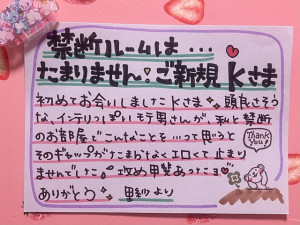 禁断ルームは…
たまりません!ご新規Kさま
初めてお会いしましたKさま 頭良さそう
な、インテリっぽいモテ男さんが、私と禁断
のお部屋でこんなことを…って思うと
そのギャップがたまらなくエロくて止まり
ませんでした 攻め甲斐あったコ
ありがとう 里紗より
Thank
You!